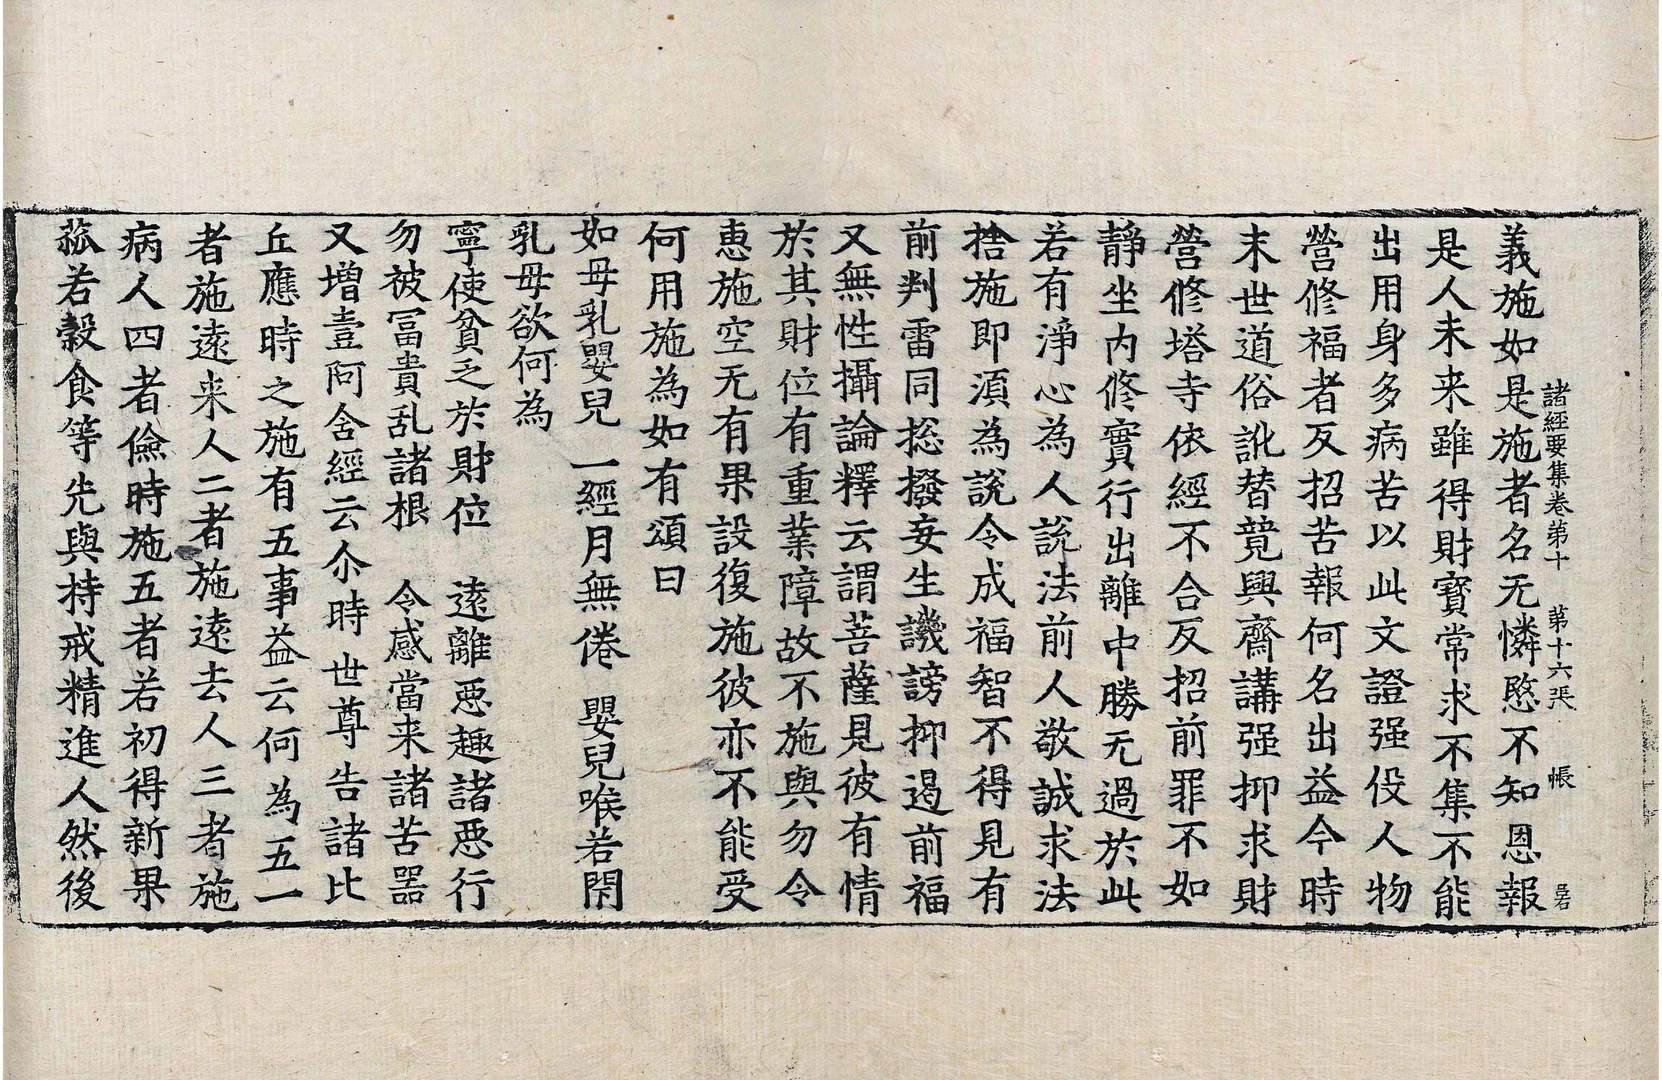 諸經要集卷第十 第十六張 帳 吕若
義施如是施者名无憐愍不知恩報
是人未来雖得財寶常求不集不能
出用身多病苦以此文證强伇人物
營修福者反招苦報何名出益今時
末世道俗訛替競興齋講强抑求財
營修塔寺依經不合反招前罪不如
靜坐内修實行出離中勝无過於此
若有淨心為人說法前人敬誠求法
捨施即須為說令成福智不得見有
前判雷同捴撥妄生譏謗抑遏前福
又無性攝論釋云謂菩薩見彼有情
於其財位有重業障故不施與勿令
惠施空无有果設復施彼亦不能受
何用施為如有頌曰
如母乳嬰兒 一經月無倦 嬰兒喉若閇
乳母欲何為
寧使貧乏於財位 遠離惡趣諸惡行
勿被冨貴乱諸根 令感當来諸苦器
又增壹阿含經云尒時世尊告諸比
丘應時之施有五事益云何為五一
者施遠来人二者施遠去人三者施
病人四者儉時施五者若初得新果
蓏若穀食等先與持戒精進人然後